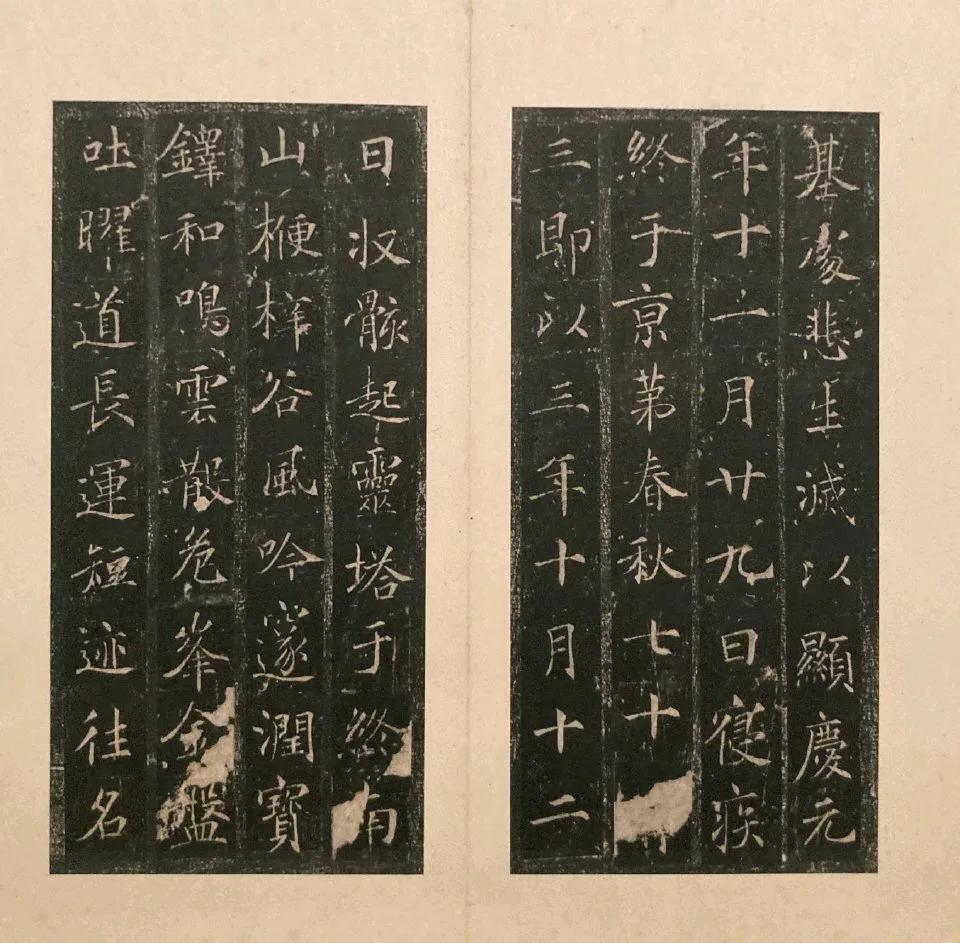 基悲生滅以顯慶元
年十一月廿九日寢疾
終于京第春秋七十
三即以三年十月十二
日收骸起靈塔于終南
山楩梓谷風吟邃澗寶
鐸和鳴雲散危峯金盤
吐曜道長運短迹往名